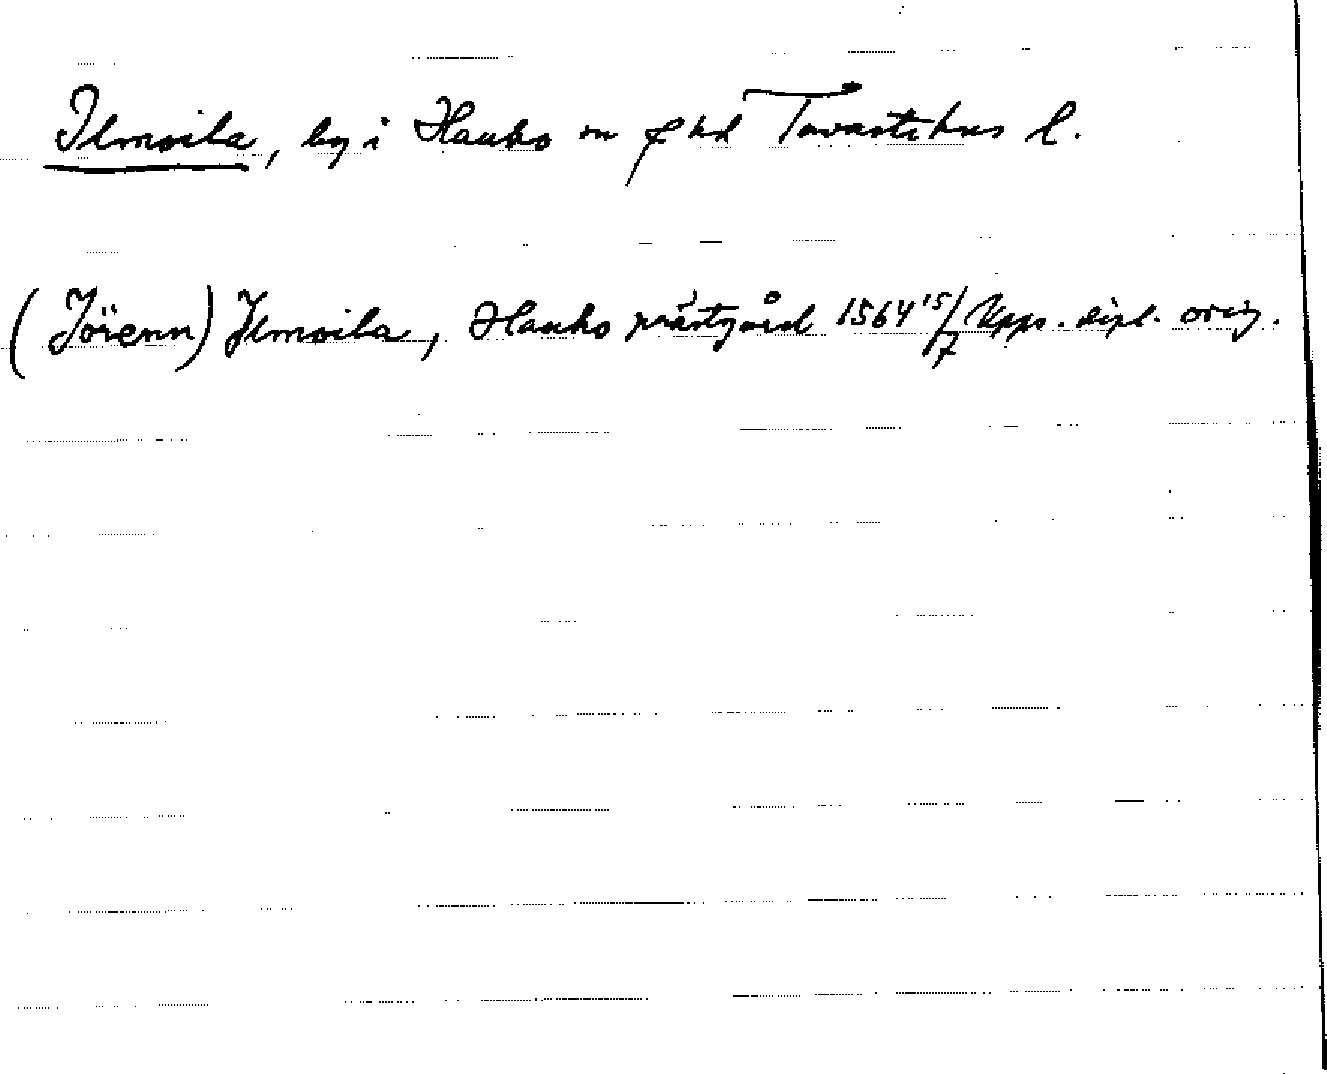 Ilmoila, by i Hauho sn f hd Tavastehus l.
(Jörenn) Ilmoila, Hauho prästgård 1564 15/7 Upps. dipl. orig.